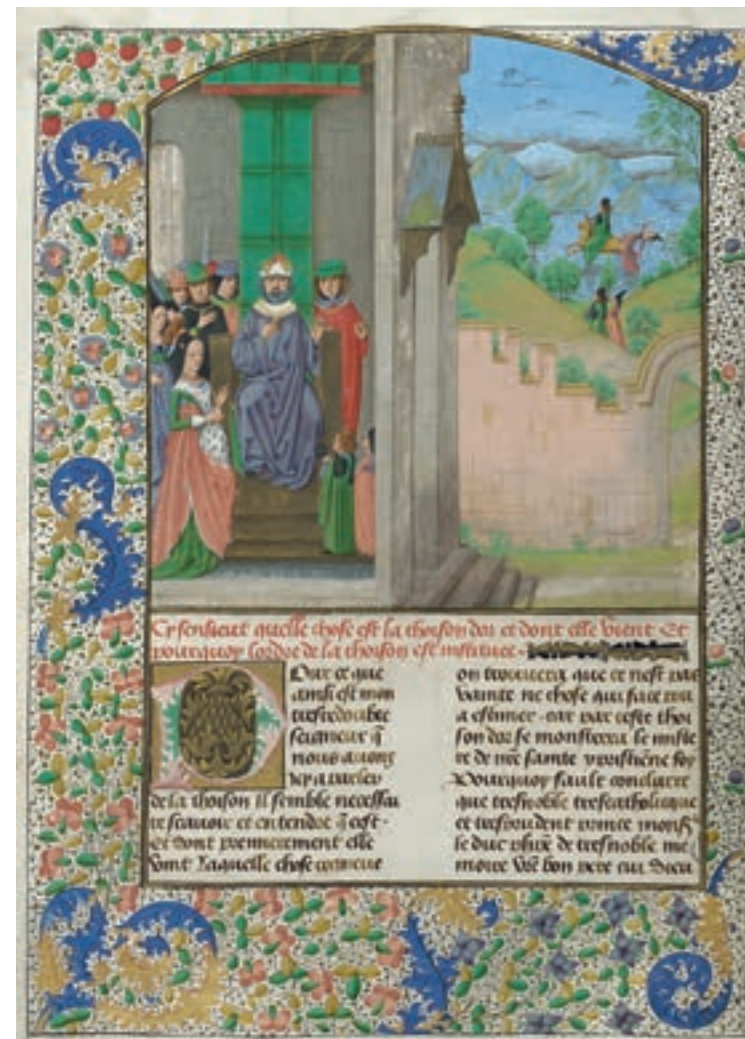 Cy sensieut quelle chose est la thoison dor et dont elle vient Et
pourquoy lordre de la thoison est institue
Pour ce que
ainsi est mon
tresredoubte
seigneur q̃
nous auons
icy a parler
de la thoison il semble necessai
re scauoir et entendre q̃ cest.
Et dont premierement elle
vint Laquelle chose
on trouuera que ce nest pas
vainte ne chose qui face
a estimer. car par ceste thoi
son dor se monstrera le miste
re de nre sainte
Pourquoy fault conclurre
que tresnoble trescatholicque
et tresprudent prince mons̃
le duc phẽ de tresnoble me
moire vr̃e bon pere cui dieu